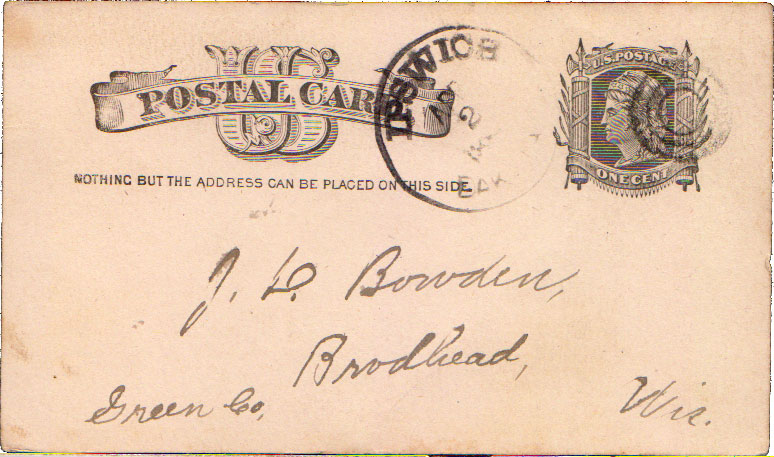 U S
POSTAL CAR
NOTHING BUT THE ADDRESS CAN BE PLACED ON THIS SIDE.
IPSWICH
2
DAK
U.S. POSTAGE
ONE CENT
J. H. Bowden,
Brodhead,
Green Co,
Wis.